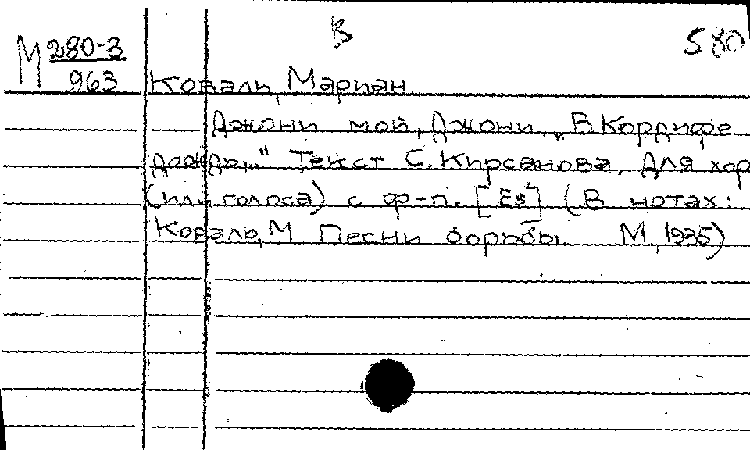 В 580
М 280-3
963 Коваль, Мариан
Джони мой, Джони „В Кордифе
дожди..." Текст С. Кирсанова. Для хор
(или голоса) с ф-п. [Es] (В нотах:
Коваль, М Песни борьбы. М, 1935)